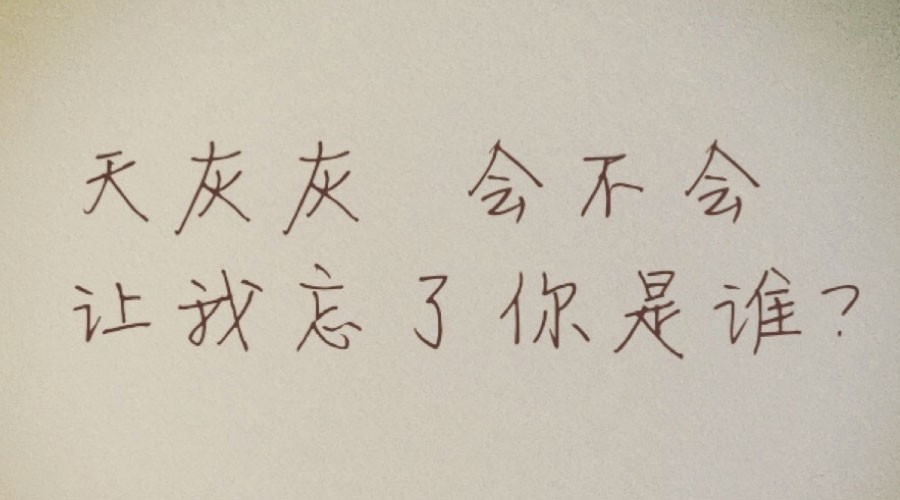 天灰灰 会不会
让我忘了你是谁?